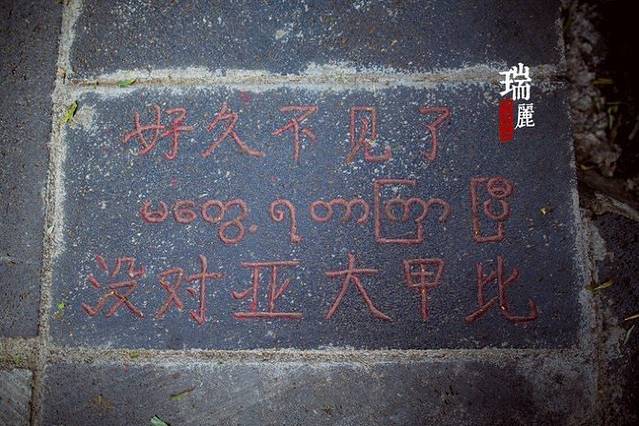 好久不见了
မတွေ့ရတာကြာပြီ
没对亚大甲比
瑞麗